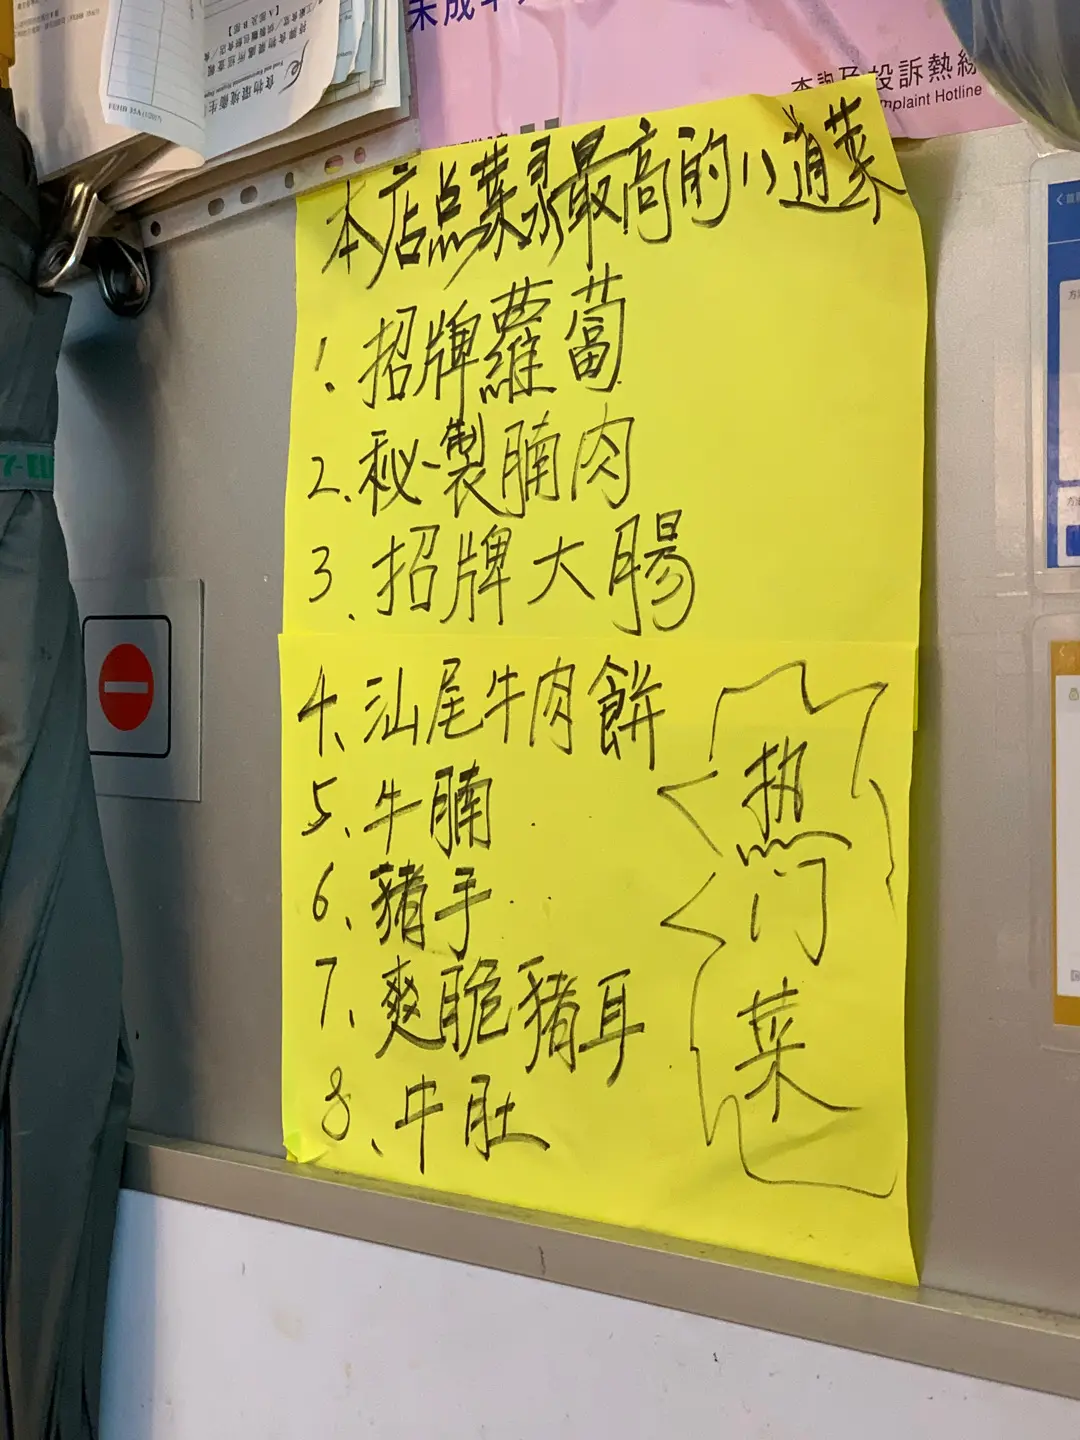 未成年
查詢及投訴熱線
mplaint Hotline
食物環境衛生
本店点菜最高的小菜
1. 招牌蘿蔔
2. 秘製腩肉
3. 招牌大腸
4、汕尾牛肉餅
5、牛腩
6、豬手
7、爽脆豬耳
8、牛肚
热门菜